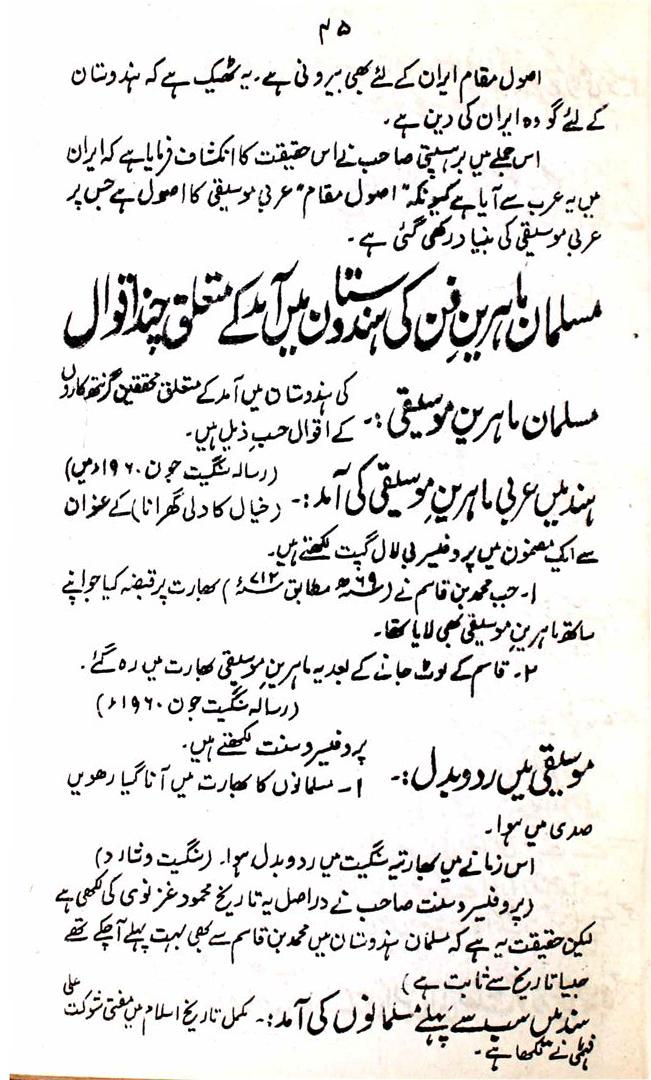 ۴۵
اصول مقام ایران کے لئے بھی بیرونی ہے۔ یہ ٹھیک ہے کہ ہندوستان
کے لئے گو وہ ایران کی دین ہے۔
اس جملے میں برہسپتی صاحب نے اس حقیقت کا انکشاف فرمایا ہے کہ ایران
میں یہ عرب سے آیا ہے کیونکہ "اصول مقام" عربی موسیقی کا اصول ہے جس پر
عربی موسیقی کی بنیاد رکھی گئی ہے۔
مسلمان ماہرینِ فن کی ہندوستان میں آمد کے متعلق چند اقوال
مسلمان ماہرینِ موسیقی :۔ کی ہندوستان میں آمد کے متعلق محققین گرنتھ کاروں
کے اقوال حسبِ ذیل ہیں۔
ہند میں عربی ماہرینِ موسیقی کی آمد :۔ (رسالہ سنگیت جون ۱۹۶۰ء میں)
(خیال کا دلی گھرانا) کے عنوان
سے ایک مضمون میں پروفیسر بی لال گپت لکھتے ہیں۔
۱۔ جب محمد بن قاسم نے (۶۹ھ مطابق ۷۱۲ء) بھارت پر قبضہ کیا جو اپنے
ساتھ ماہرینِ موسیقی بھی لایا تھا۔
۲۔ قاسم کے لوٹ جانے کے بعد یہ ماہرینِ موسیقی بھارت میں رہ گئے۔
(رسالہ سنگیت جون ۱۹۶۰ء)
موسیقی میں ردوبدل :۔ پروفیسر دسنت لکھتے ہیں۔
۱۔ مسلمانوں کا بھارت میں آنا گیارھویں
صدی میں ہوا۔
اس زمانے میں بھارتیہ سنگیت میں ردوبدل ہوا۔ (سنگیت وشارد)
(پروفیسر دسنت صاحب نے دراصل یہ تاریخ محمود غزنوی کی لکھی ہے
لیکن حقیقت یہ ہے کہ مسلمان ہندوستان میں محمد بن قاسم سے بھی بہت پہلے آچکے تھے
جیسا تاریخ سے ثابت ہے)
سندمیں سب سے پہلے مسلمانوں کی آمد :۔ مکمل تاریخ اسلام میں مفتی شوکت علی
فہمی نے لکھا ہے۔